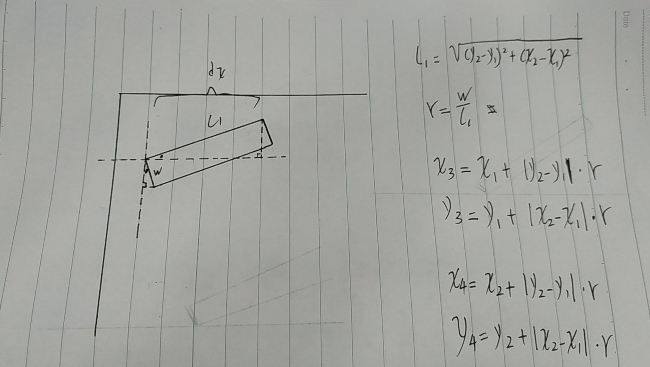 dx
L1
w
L₁ = √(y₂-y₁)²+(x₂-x₁)²
r = w/L₁
x₃ = x₁ + |y₂-y₁|·r
y₃ = y₁ + |x₂-x₁|·r
x₄ = x₂ + |y₂-y₁|·r
y₄ = y₂ + |x₂-x₁|·r